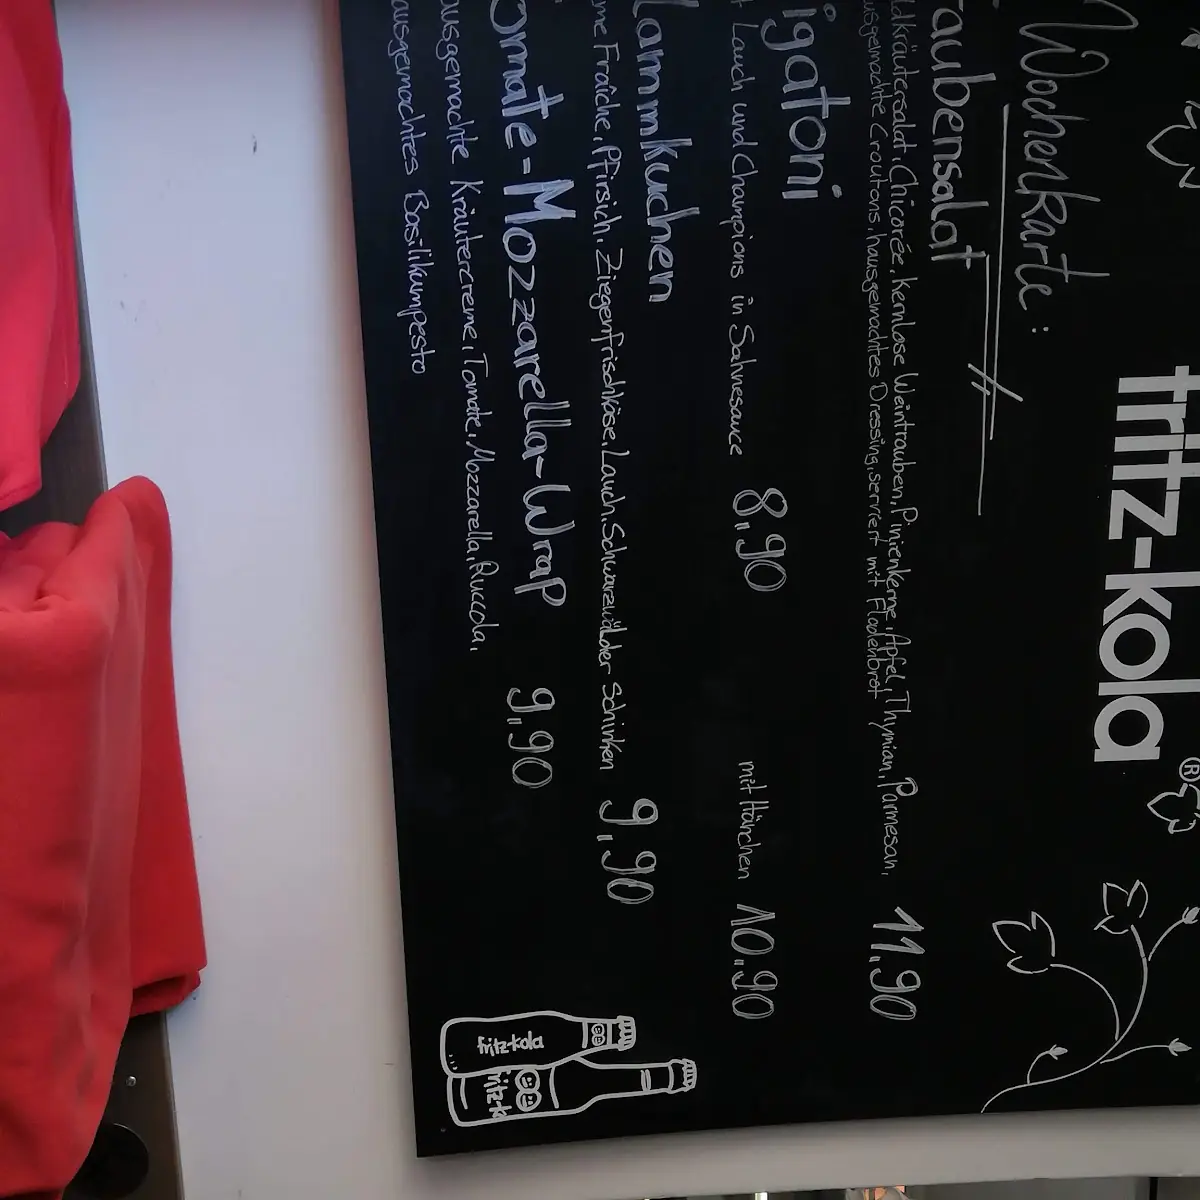 fritz-kola®
Wochenkarte:
raubensalat
ldkräutersalat, Chicorée, kernlose Weintrauben, Pinienkerne, Apfel, Thymian, Parmesan,
usgemachte Croutons, hausgemachtes Dressing, serviert mit Fladenbrot 11,90
igatoni
t Lauch und Champions in Sahnesauce 8,90 mit Hänchen 10,90
lammkuchen
me Fraîche, Pfirsich, Ziegenfrischköse, Lauch, Schwarzwälder Schinken 9,90
omate-Mozzarella-Wrap
ausgemachte Kräutercreme, Tomate, Mozzarella, Ruccola, 9,90
ausgemachtes Basilikumpesto
fritz-kola
ritz-k